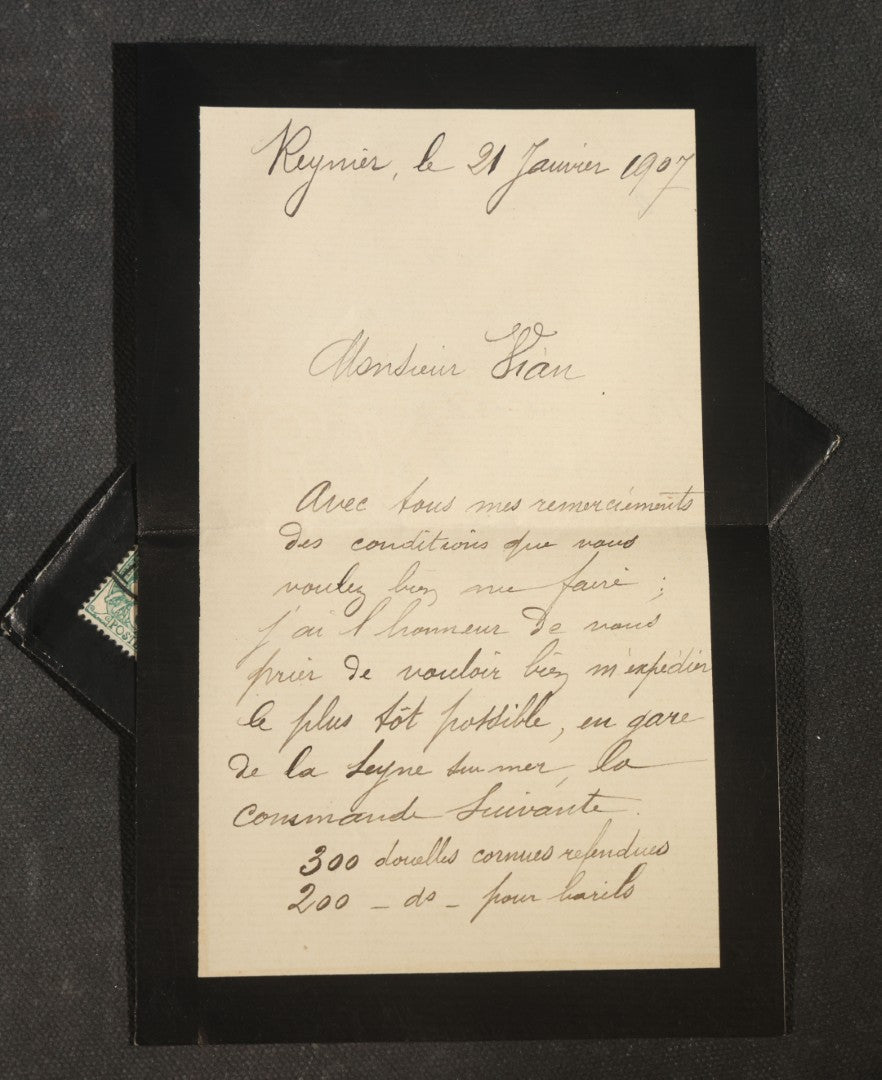 Reynier, le 21 Janvier 1907
Monsieur Vian
Avec tous mes remerciements
des conditions que vous
voulez bien me faire ;
j'ai l'honneur de vous
prier de vouloir bien m'expédier
le plus tôt possible, en gare
de la Seyne sur mer, la
commande suivante.
300 douelles cornues refendues
200 - do - pour barils
POST